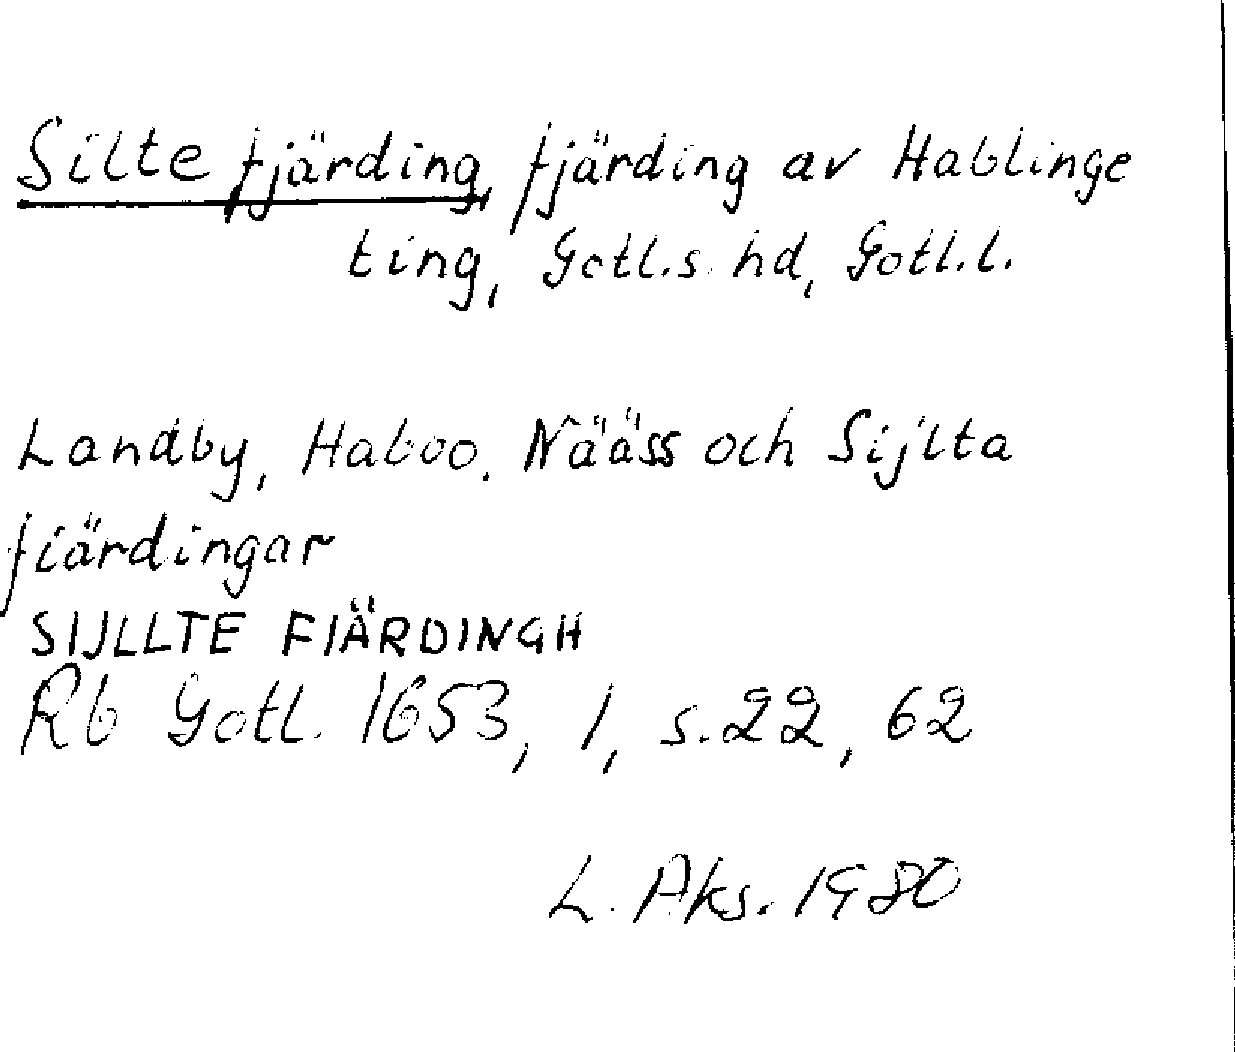 Silte fjärding, fjärding av Hablinge
ting, Gotl.s. hd, Gotl.l.
Landby, Haboo, Nääss och Sijlta
fiärdingar
SIJLLTE FIÄRDINGH
Rb Gotl. 1653, 1, s. 22, 62
L. Aks. 1980